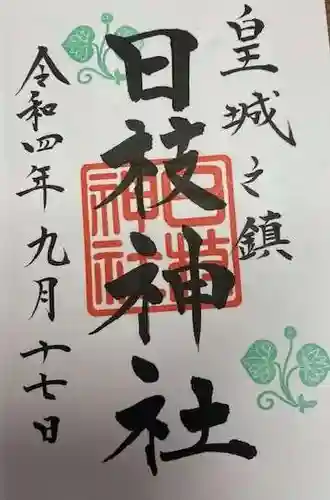 皇城之鎮
日枝神社
日枝神社
令和四年九月十七日